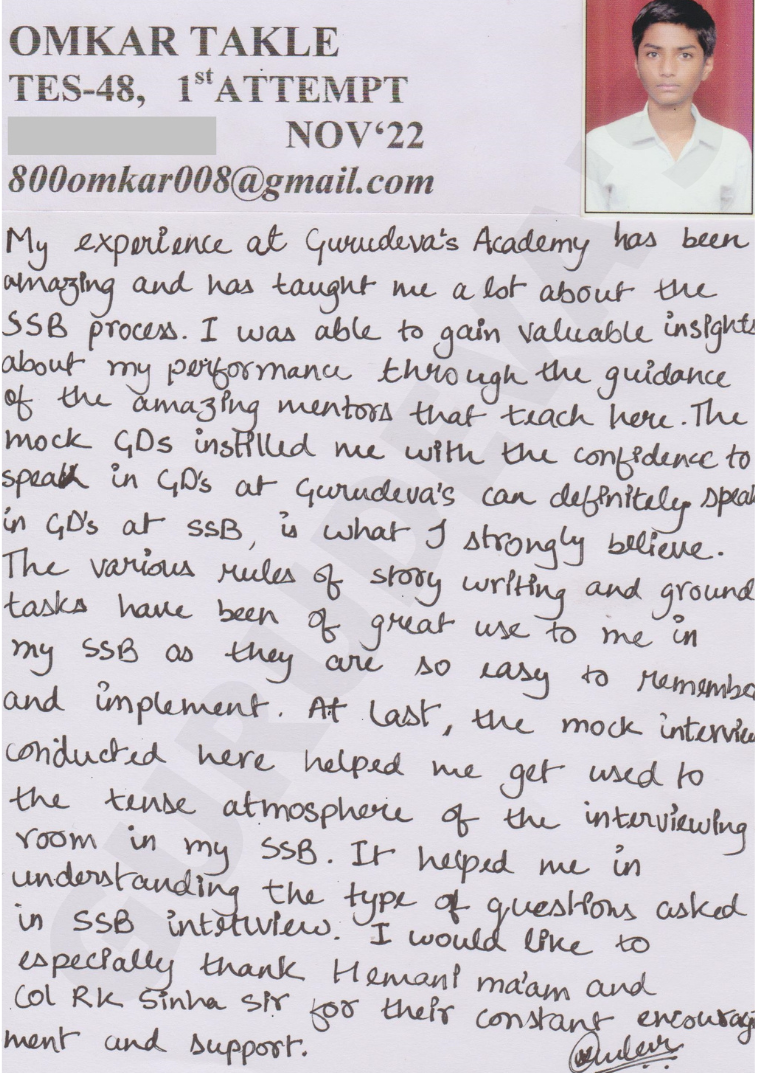 OMKAR TAKLE
TES-48, 1st ATTEMPT
NOV'22
800omkar008@gmail.com
My experience at Gurudeva's Academy has been
amazing and has taught me a lot about the
SSB process. I was able to gain valuable insights
about my performance through the guidance
of the amazing mentors that teach here. The
mock GDs instilled me with the confidence to
speak in GD's at Gurudeva's can definitely speak
in GD's at SSB, is what I strongly believe.
The various rules of story writing and ground
tasks have been of great use to me in
my SSB as they are so easy to remembe
and implement. At last, the mock intervie
conducted here helped me get used to
the tense atmosphere of the interviewing
room in my SSB. It helped me in
understanding the type of questions asked
in SSB intetview. I would like to
especially thank Hemani ma'am and
Col RK Sinha Sir for their constant encourag
ment and support.
GURUDEVA'